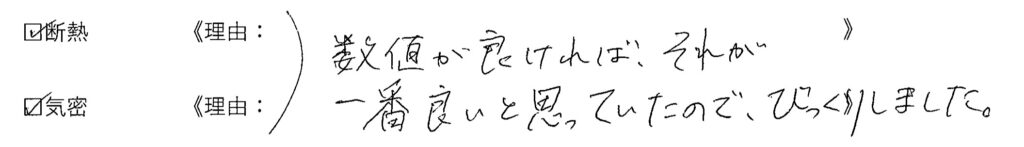 ☑断熱 《理由： 数値が良ければ、それが 》
☑気密 《理由： 一番良いと思っていたので、びっくりしました。 》